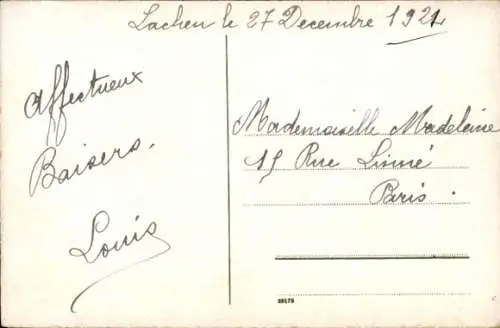 Lachen le 27 Decembre 1921
Affectueux
Baisers.
Louis
Mademoiselle Madeleine
15 Rue Linné
Paris.